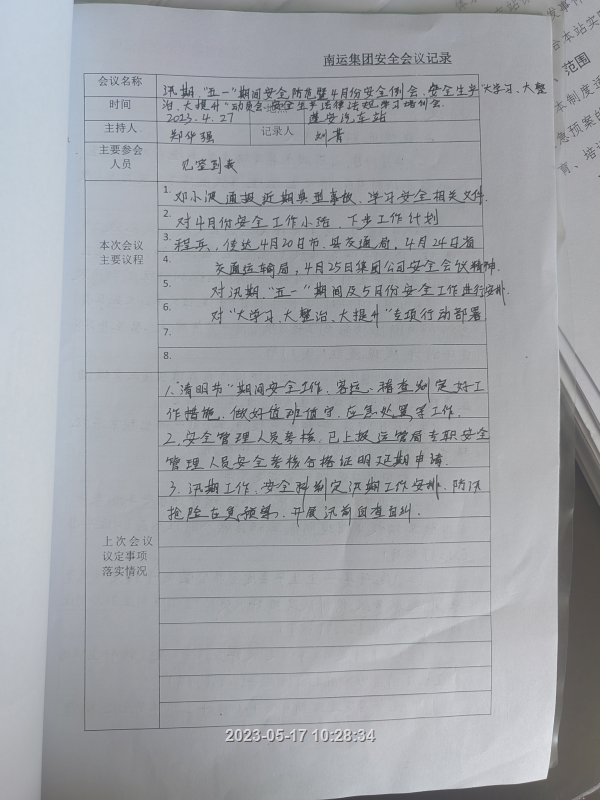 南运集团安全会议记录
会议名称 汛期、"五一"期间安全防范暨4月份安全例会、安全生产"大学习、大整
治、大提升"动员会、安全生产法律法规学习培训会
时间 2023.4.27 地点 蓬安汽车站
主持人 郑仲强 记录人 刘菁
主要参会
人员
见签到表
本次会议
主要议程
1. 邓小波通报近期典型事故、学习安全相关文件.
2. 对4月份安全工作小结、下步工作计划
3. 程兵、传达4月20日市、县交通局,4月24日省
4. 交通运输局,4月25日集团公司安全会议精神.
5. 对汛期、"五一"期间及5月份安全工作进行安排
6. 对"大学习、大整治、大提升"专项行动部署
7.
8.
上次会议
议定事项
落实情况
1."清明节"期间安全工作、客运、稽查制定好工
作措施,做好值班值守、应急处置等工作.
2、安全管理人员考核,已上报运管局专职安全
管理人员安全考核合格证明延期申请.
3、汛期工作、安全科制定汛期工作安排、防汛
抢险应急预案、开展汛前自查自纠.
发事件
合本站实际
、范围
本制度适
急预案的
育、培训
2023-05-17 10:28:34